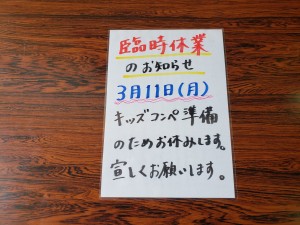 臨時休業
のお知らせ
3月11日(月)
キッズコンペ準備
のためお休みします。
宜しくお願いします。